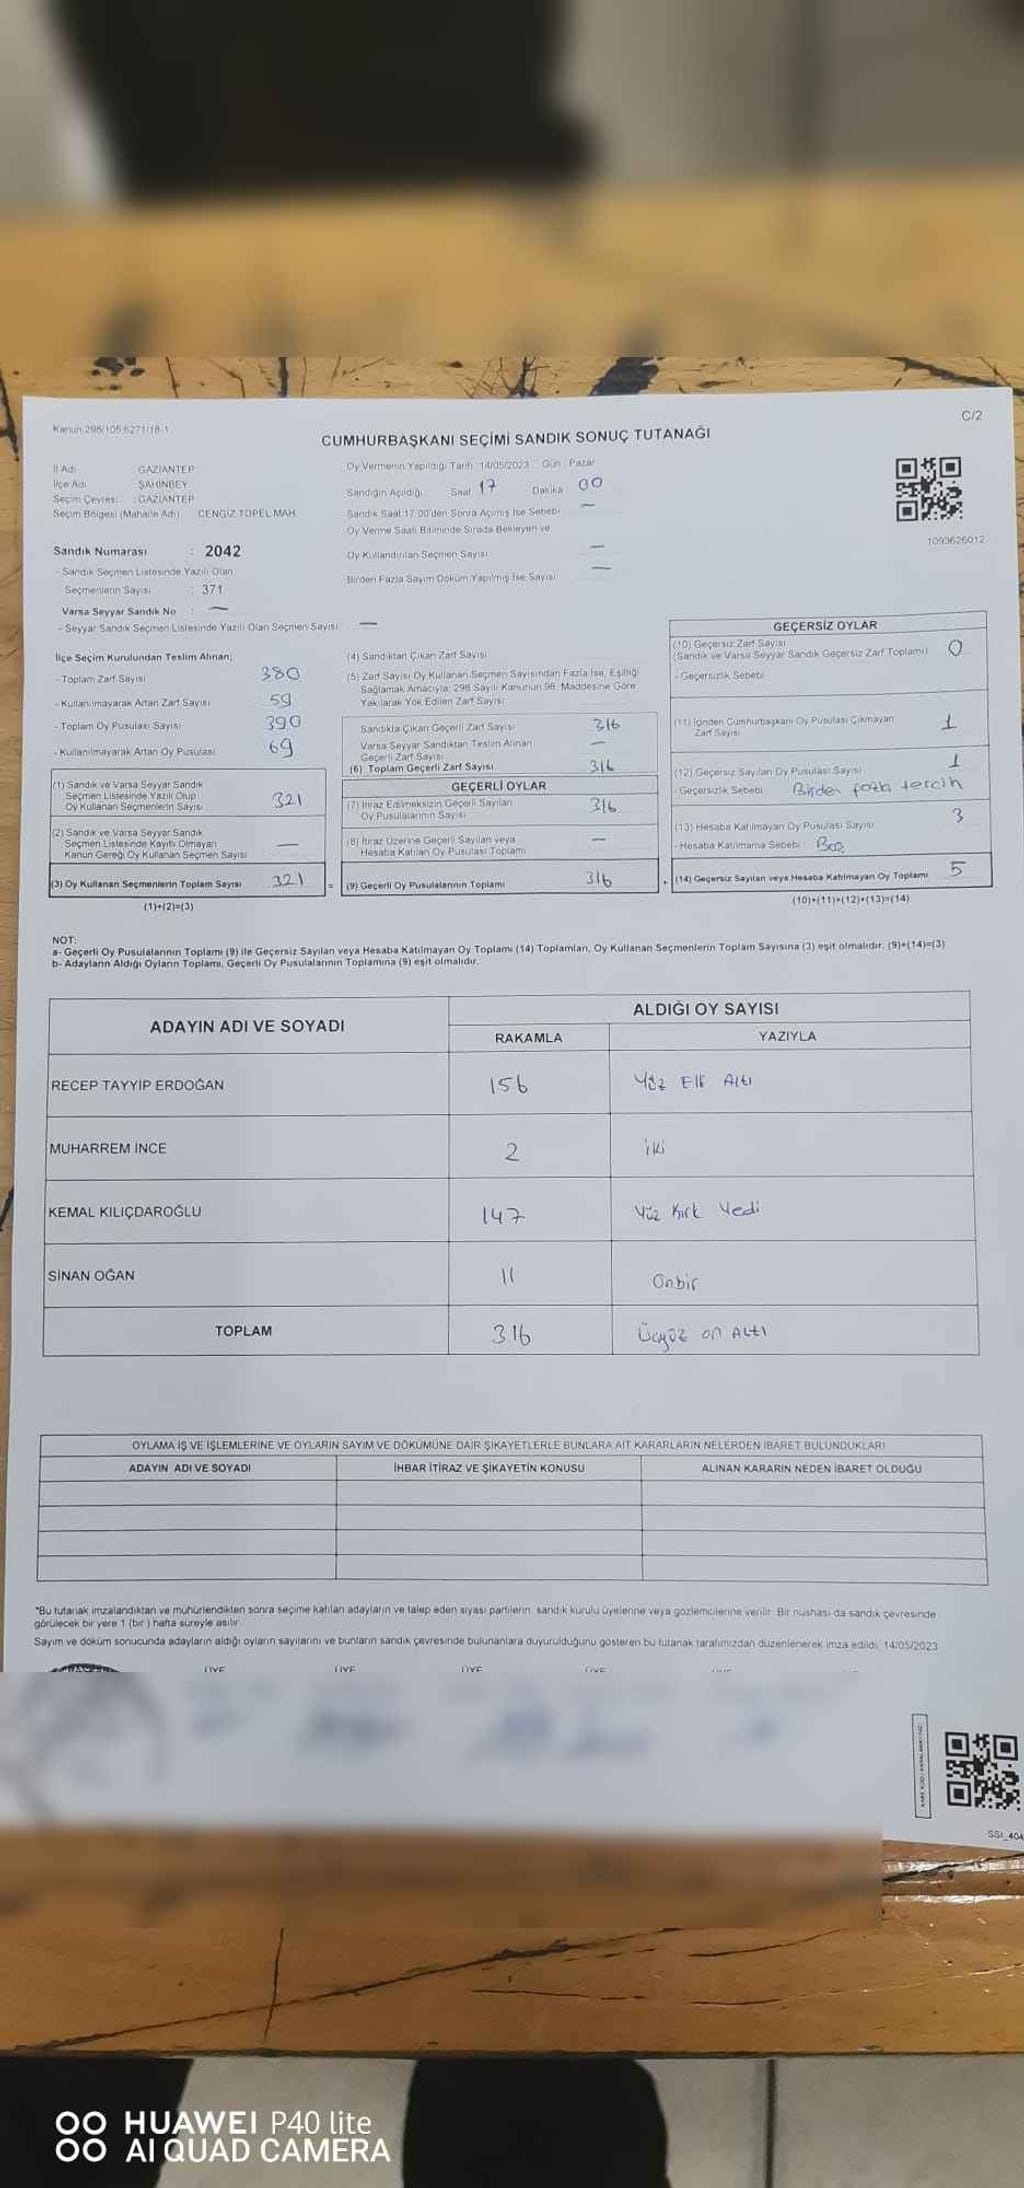 Kanun 298/105;6271/18-1
C/2
CUMHURBAŞKANI SEÇİMİ SANDIK SONUÇ TUTANAĞI
İl Adı : GAZİANTEP
İlçe Adı : ŞAHİNBEY
Seçim Çevresi : GAZİANTEP
Seçim Bölgesi (Mahalle Adı) CENGİZ TOPEL MAH.
Sandık Numarası : 2042
- Sandık Seçmen Listesinde Yazılı Olan
Seçmenlerin Sayısı : 371
Varsa Seyyar Sandık No : —
- Seyyar Sandık Seçmen Listesinde Yazılı Olan Seçmen Sayısı —
Oy Vermenin Yapıldığı Tarih 14/05/2023 Gün Pazar
Sandığın Açıldığı Saat 17 Dakika 00
Sandık Saat 17:00'den Sonra Açılmış İse Sebebi —
Oy Verme Saati Bitiminde Sırada Bekleyen ve
Oy Kullandırılan Seçmen Sayısı —
Birden Fazla Sayım Döküm Yapılmış İse Sayısı —
1093626012
İlçe Seçim Kurulundan Teslim Alınan;
- Toplam Zarf Sayısı 380
- Kullanılmayarak Artan Zarf Sayısı 59
- Toplam Oy Pusulası Sayısı 390
- Kullanılmayarak Artan Oy Pusulası 69
(1) Sandık ve Varsa Seyyar Sandık
Seçmen Listesinde Yazılı Olup
Oy Kullanan Seçmenlerin Sayısı 321
(2) Sandık ve Varsa Seyyar Sandık
Seçmen Listesinde Kayıtlı Olmayan
Kanun Gereği Oy Kullanan Seçmen Sayısı —
(3) Oy Kullanan Seçmenlerin Toplam Sayısı 321 =
(1)+(2)=(3)
(4) Sandıktan Çıkan Zarf Sayısı
(5) Zarf Sayısı Oy Kullanan Seçmen Sayısından Fazla İse, Eşitliği
Sağlamak Amacıyla; 298 Sayılı Kanunun 98. Maddesine Göre
Yakılarak Yok Edilen Zarf Sayısı
Sandıkta Çıkan Geçerli Zarf Sayısı 316
Varsa Seyyar Sandıktan Teslim Alınan
Geçerli Zarf Sayısı —
(6) Toplam Geçerli Zarf Sayısı 316
GEÇERLİ OYLAR
(7) İtiraz Edilmeksizin Geçerli Sayılan
Oy Pusulalarının Sayısı 316
(8) İtiraz Üzerine Geçerli Sayılan veya
Hesaba Katılan Oy Pusulası Toplamı —
(9) Geçerli Oy Pusulalarının Toplamı 316 +
GEÇERSİZ OYLAR
(10) Geçersiz Zarf Sayısı
(Sandık ve Varsa Seyyar Sandık Geçersiz Zarf Toplamı) 0
- Geçersizlik Sebebi
(11) İçinden Cumhurbaşkanı Oy Pusulası Çıkmayan
Zarf Sayısı 1
(12) Geçersiz Sayılan Oy Pusulası Sayısı 1
- Geçersizlik Sebebi Birden fazla tercih
(13) Hesaba Katılmayan Oy Pusulası Sayısı 3
- Hesaba Katılmama Sebebi Boş
(14) Geçersiz Sayılan veya Hesaba Katılmayan Oy Toplamı 5
(10)+(11)+(12)+(13)=(14)
NOT:
a- Geçerli Oy Pusulalarının Toplamı (9) ile Geçersiz Sayılan veya Hesaba Katılmayan Oy Toplamı (14) Toplamları, Oy Kullanan Seçmenlerin Toplam Sayısına (3) eşit olmalıdır. (9)+(14)=(3)
b- Adayların Aldığı Oyların Toplamı, Geçerli Oy Pusulalarının Toplamına (9) eşit olmalıdır.
ADAYIN ADI VE SOYADI
ALDIĞI OY SAYISI
RAKAMLA YAZIYLA
RECEP TAYYİP ERDOĞAN 156 Yüz Elli Altı
MUHARREM İNCE 2 iki
KEMAL KILIÇDAROĞLU 147 Yüz Kırk Yedi
SİNAN OĞAN 11 Onbir
TOPLAM 316 Üçyüz on Altı
OYLAMA İŞ VE İŞLEMLERİNE VE OYLARIN SAYIM VE DÖKÜMÜNE DAİR ŞİKAYETLERLE BUNLARA AİT KARARLARIN NELERDEN İBARET BULUNDUKLARI
ADAYIN ADI VE SOYADI İHBAR İTİRAZ VE ŞİKAYETİN KONUSU ALINAN KARARIN NEDEN İBARET OLDUĞU
*Bu tutanak imzalandıktan ve mühürlendikten sonra seçime katılan adayların ve talep eden siyasi partilerin sandık kurulu üyelerine veya gözlemcilerine verilir. Bir nüshası da sandık çevresinde
görülecek bir yere 1 (bir) hafta süreyle asılır.
Sayım ve döküm sonucunda adayların aldığı oyların sayılarını ve bunların sandık çevresinde bulunanlara duyurulduğunu gösteren bu tutanak tarafımızdan düzenlenerek imza edildi. 14/05/2023
ÜYE ÜYE ÜYE ÜYE
HUAWEI P40 lite
AI QUAD CAMERA